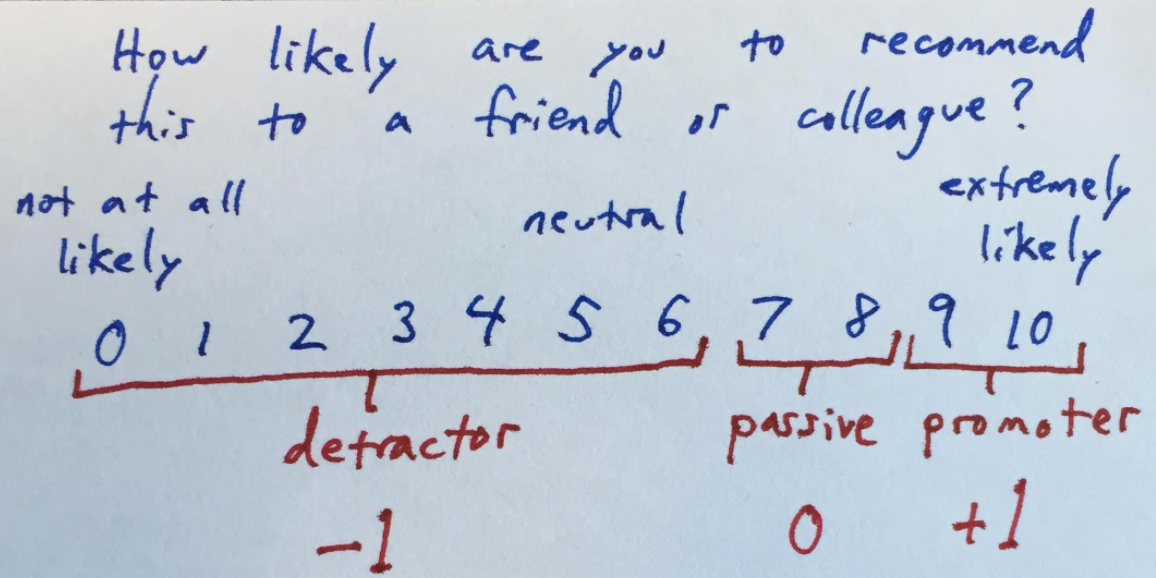 How likely are you to recommend
this to a friend or colleague?
not at all likely
neutral
extremely likely
0 1 2 3 4 5 6 7 8 9 10
detractor passive promoter
-1 0 +1